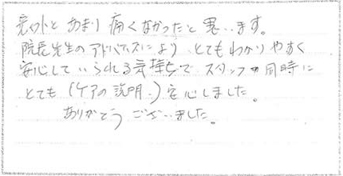 意外とあまり痛くなかったと思います。
院長先生のアドバイスにより とてもわかりやすく
安心していられる気持ちで、スタッフの同時に
とても（ケアの説明.）安心しました。
ありがとう ございました。